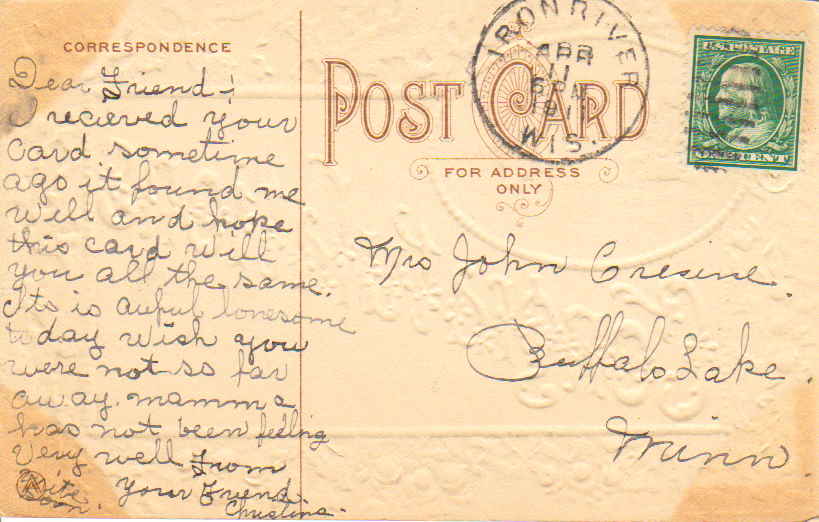 CORRESPONDENCE
Dear Friend:
I recieved your
card sometime
ago it found me
well and hope
this card will
you all the same.
Its is awful lonesome
today wish you
were not so far
away. mamma
has not been feeling
very well From
Your Friend
Christina.
Write
soon.
POST CARD
FOR ADDRESS
ONLY
IRON RIVER
APR
11
6 PM
1911
WIS.
ONE CENT
Mrs John Cresine.
Buffalo Lake.
Minn